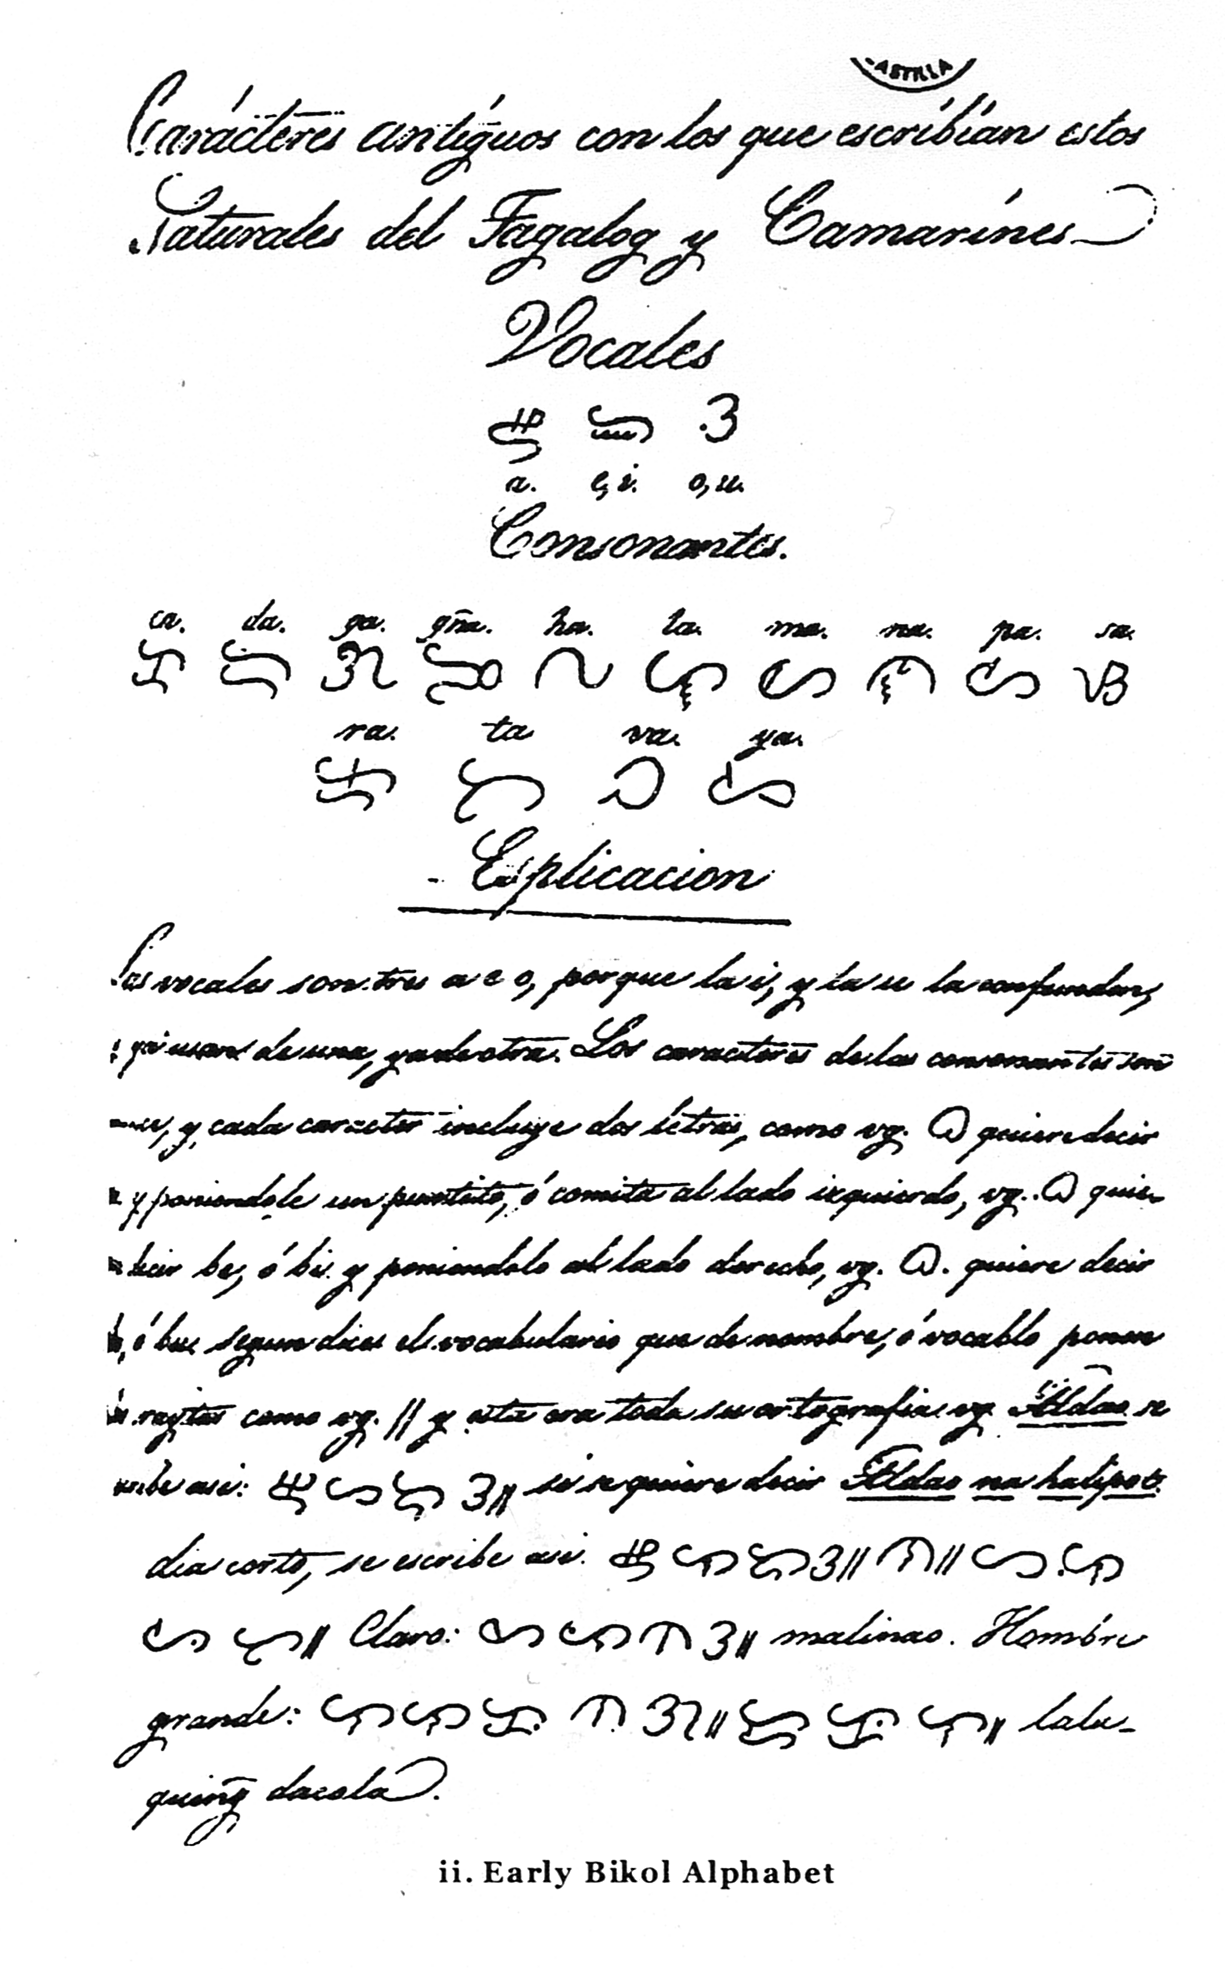 ASTILLA
Carácteres antíguos con los que escribían estos
Naturales del Tagalog y Camarínes
Vocales
ᜀ ᜁ ᜂ
a. e, i. o, u.
Consonantes.
ca. da. ga. gña. ha. la. ma. na. pa. sa.
ᜃ ᜇ ᜄ ᜅ ᜑ ᜎ ᜋ ᜈ ᜉ ᜐ
ra. ta va. ya.
ᜍ ᜆ ᜊ ᜌ
Esplicacion
Las vocales son tres a e o, porque la i, y la u la confunden,
usan de una, ya de otra. Los caracteres de las consonantes son
y cada caracter incluye dos letras, como vg. ᜊ quiere decir
y poniendole un puntito, ó comita al lado izquierdo, vg. ᜊ quie-
decir be, ó bi y poniendolo al lado derecho, vg. ᜊ. quiere decir
ó bu segun dice el vocabulario que de nombre, ó vocablo ponen
rayitas como vg. || y esta era toda su ortografia vg Aldao se
asi: se quiere decir Aldao na halipot
dia corto, se escribe asi.
Claro: malinao. Hombre
grande: lalu-
quing dacola.
ii. Early Bikol Alphabet